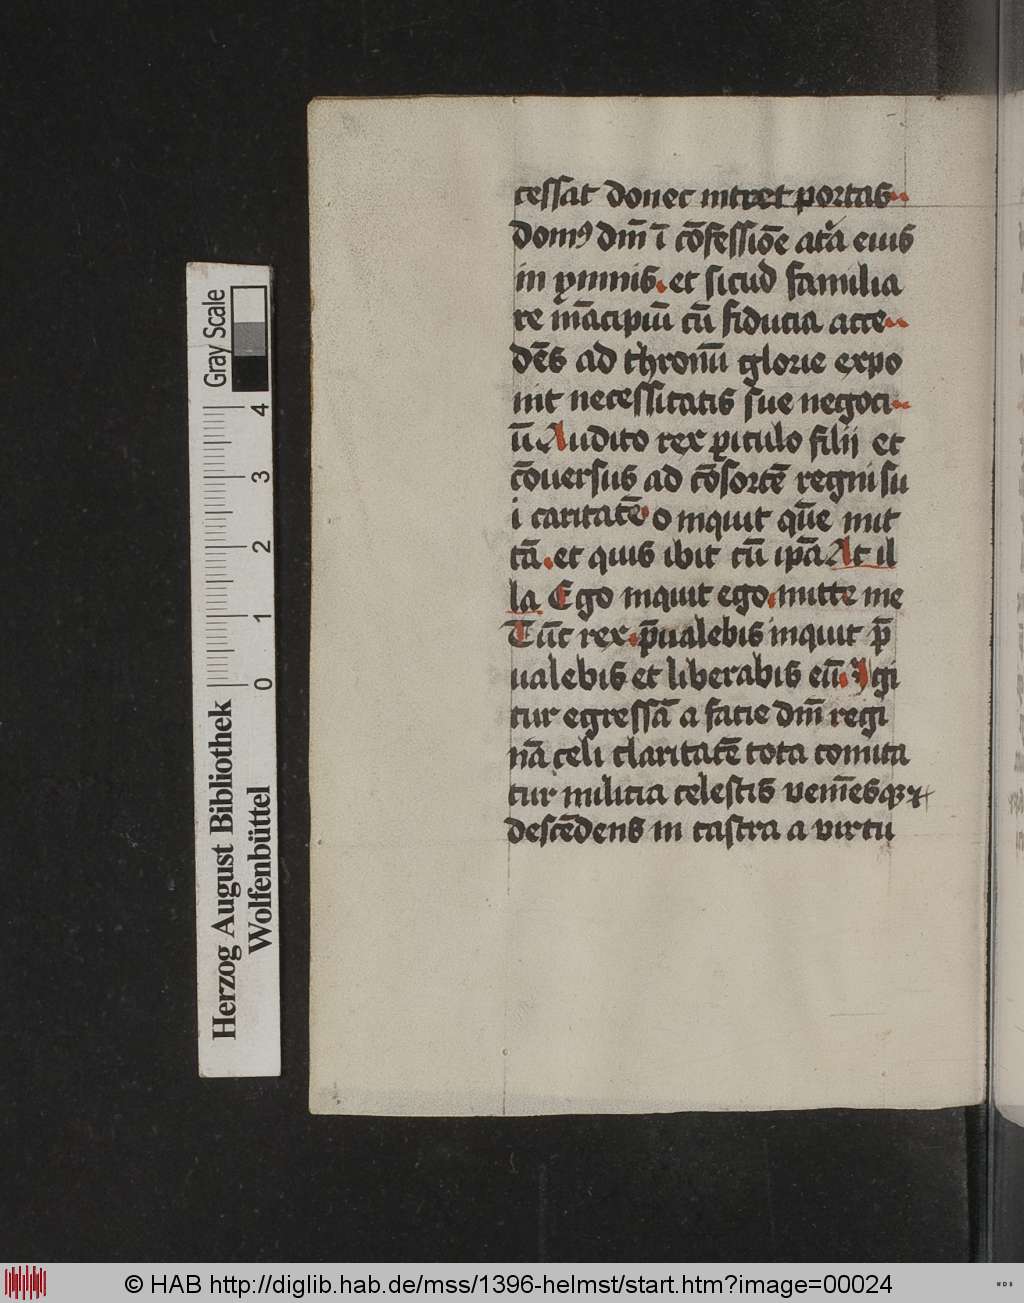 cessat donec intret portas
domꝰ dm̄ ī cōfessiōe atͥa eius
in ymnis. et sicud familia
re māicipiū cū fiducia acce
dēs ad thronū glorie expo
nit necessitatis sue negoci
ū. Audito rex ꝑiculo filij et
cōuersus ad cōsortē regni su
i caritatē o inquit quē mit
tā. et quis ibit cū ip̄a At il
la Ego inquit ego. mitte me
Tūc rex. p̄ualebis inquit p̄
ualebis et liberabis eū. Igi
tur egressā a facie dm̄ regi
nā celi claritatē tota comita
tur milicia celestis veniēsqꝫ
descēdens in castra a virtu
Gray Scale
4
3
2
1
0
Herzog August Bibliothek
Wolfenbüttel
© HAB http://diglib.hab.de/mss/1396-helmst/start.htm?image=00024